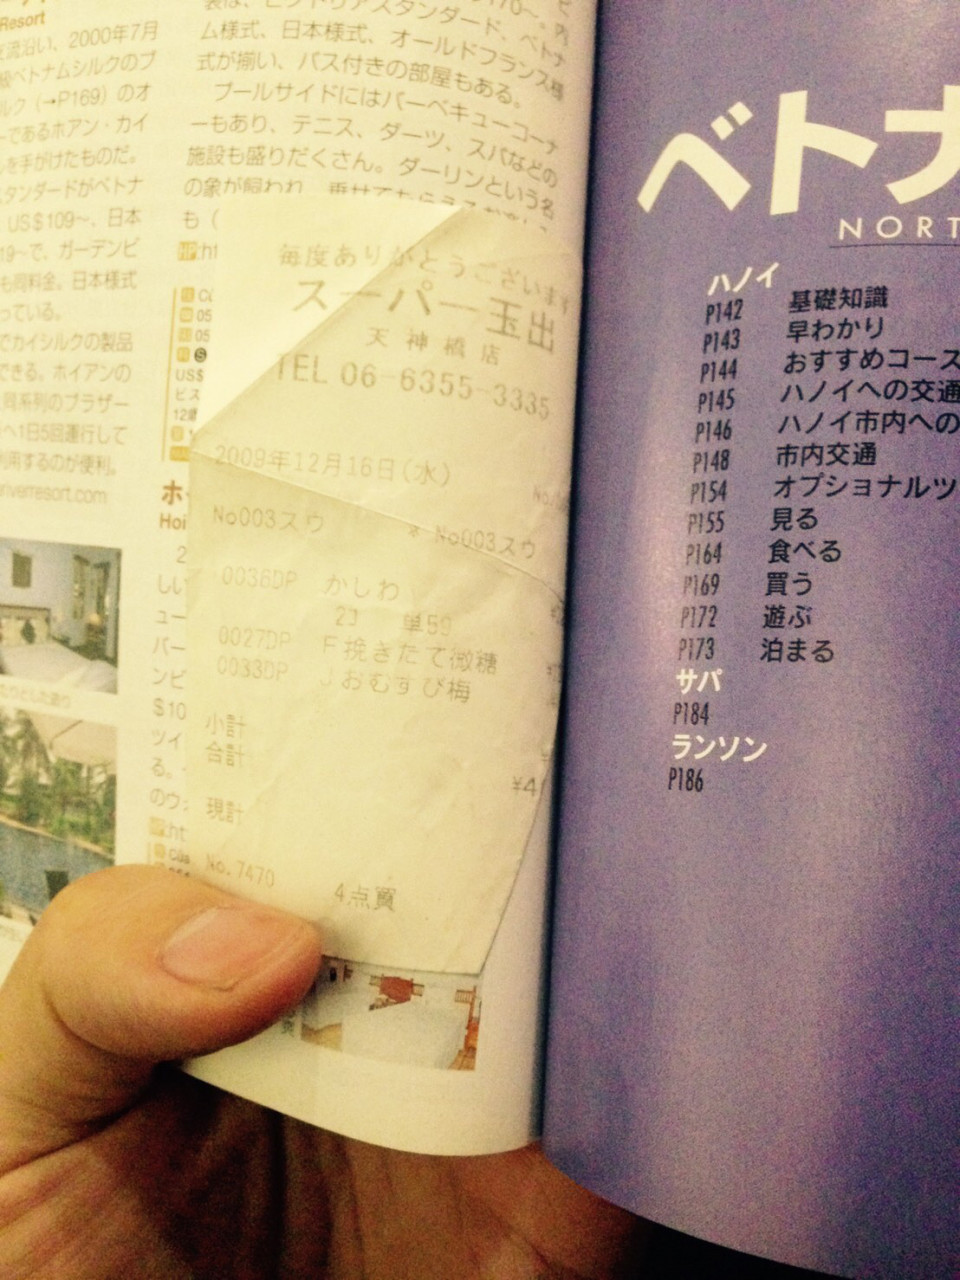 Resort
流沿い、2000年7月
級ベトナムシルクのブ
ルク（→P169）のオ
ーであるホアン・カイ
レを手がけたものだ。
スタンダードがベトナ
US$109〜、日本
19〜で、ガーデンビ
も同料金。日本様式
っている。
でカイシルクの製品
できる。ホイアンの
同系列のブラザー
へ1日5回運行して
利用するのが便利。
iverresort.com
装は、ビクトリアスタンダード、ベトナ
ム様式、日本様式、オールドフランス様
式が揃い、バス付きの部屋もある。
プールサイドにはバーベキューコーナ
ーもあり、テニス、ダーツ、スパなどの
施設も盛りだくさん。ダーリンという名
の象が飼われ、乗せてもらえる
も（
HP:ht
05
05
US$
ビス
12歳
ホ
Hoi
2
しい
ュー
バー
ンビ
$10
ツイ
る。
のウ
HP:ht
毎度ありがとうございます
スーパー玉出
天神橋店
TEL 06-6355-3335
2009年12月16日(水)
No003スウ * No003スウ
0036DP かしわ
23 単59
0027DP F挽きたて微糖
0033DP Jおむすび梅
小計
合計
¥4
現計
No.7470
4点買
ベトナ
NORT
ハノイ
P142 基礎知識
P143 早わかり
P144 おすすめコース
P145 ハノイへの交通
P146 ハノイ市内への
P148 市内交通
P154 オプショナルツ
P155 見る
P164 食べる
P169 買う
P172 遊ぶ
P173 泊まる
サパ
P184
ランソン
P186